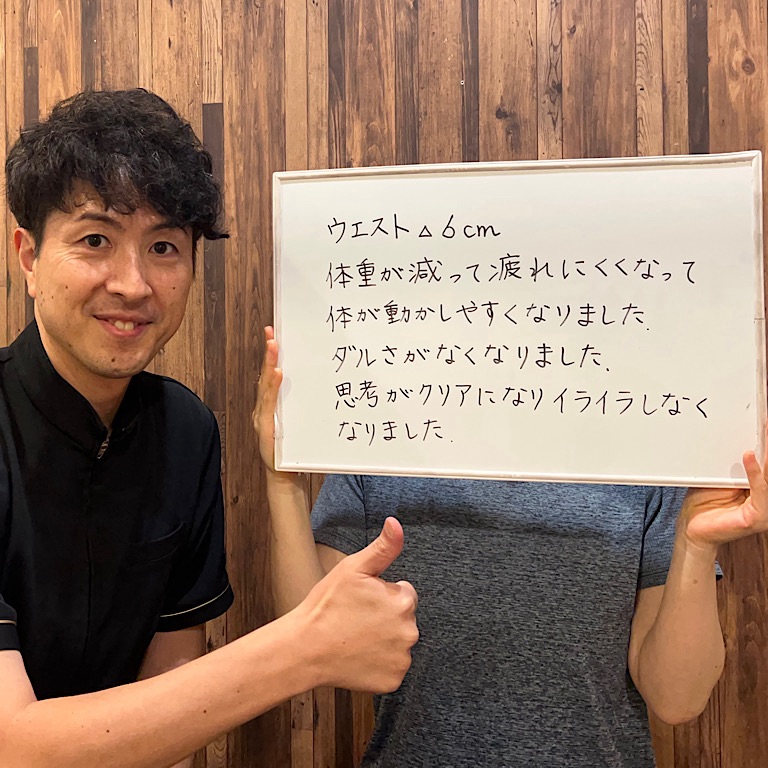 ウエスト▵6cm
体重が減って疲れにくくなって
体が動かしやすくなりました.
ダルさがなくなりました.
思考がクリアになりイライラしなく
なりました.